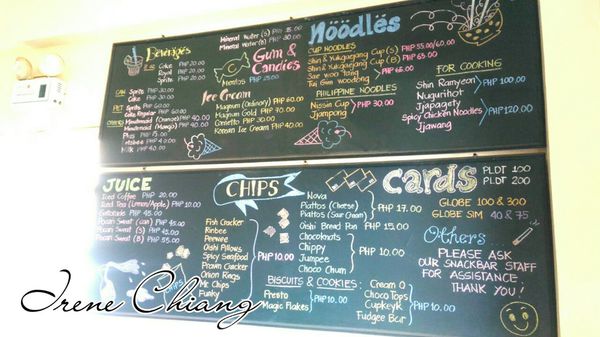 Beverages
8 oz. Coke PHP 20.00
Royal PHP 20.00
Sprite PHP 20.00
CAN Sprite PHP 30.00
Coke PHP 30.00
PET Sprite PHP 60.00
Coke Regular PHP 60.00
Minutemaid (Orange) PHP 40.00
Minutemaid (Mango) PHP 40.00
Plus PHP 15.00
Milk PHP 40.00
Mineral Water (S) PHP 15.00
Mineral Water (B) PHP 30.00
Gum & Candies
Mentos PHP 25.00
Ice Cream
Magnum (Ordinary) PHP 60.00
Magnum Gold PHP 70.00
Cornetto PHP 30.00
Korean Ice Cream PHP 40.00
Nöödlës
CUP NOODLES
Shin & Yukgaejang Cup (S) PHP 55.00/60.00
Shin & Yukgaejang Cup (B) PHP 65.00
Sae woo Tang
Tai Gim woodong
PHP 65.00
PHILIPPINE NOODLES
Nissin Cup
Jjampong
PHP 30.00
FOR COOKING
Shin Ramyeon
Nugurihot
PHP 100.00
Jjapagety
Spicy Chicken Noodles
Jjawang
PHP 120.00
JUICE
Iced Coffee PHP 20.00
Iced Tea (Lemon/Apple) PHP 10.00
Gatorade PHP 45.00
Pocari Sweat (can) PHP 45.00
Pocari Sweat (S) PHP 45.00
Pocari Sweat (B) PHP 55.00
CHIPS
Fish Cracker
Rinbee
Peewee
Oishi Pillows
Spicy Seafood
Prawn Cracker
Onion Rings
Mr. Chips
Funky
PHP 10.00
Nova
Piattos (Cheese)
Piattos (Sour Cream)
PHP 17.00
Oishi Bread Pan PHP 15.00
Chocoknots
Chippy
Jumpee
Choco Chum
PHP 10.00
BISCUITS & COOKIES:
Presto
Magic Flakes
PHP 10.00
Cream O
Choco Tops
Cupkeyk
Fudgee Bar
PHP 10.00
Cards
PLDT 100
PLDT 200
GLOBE 100 & 300
GLOBE SIM 40 & 75
Others...
PLEASE ASK
OUR SNACKBAR STAFF
FOR ASSISTANCE.
THANK YOU!
Irene Chiang